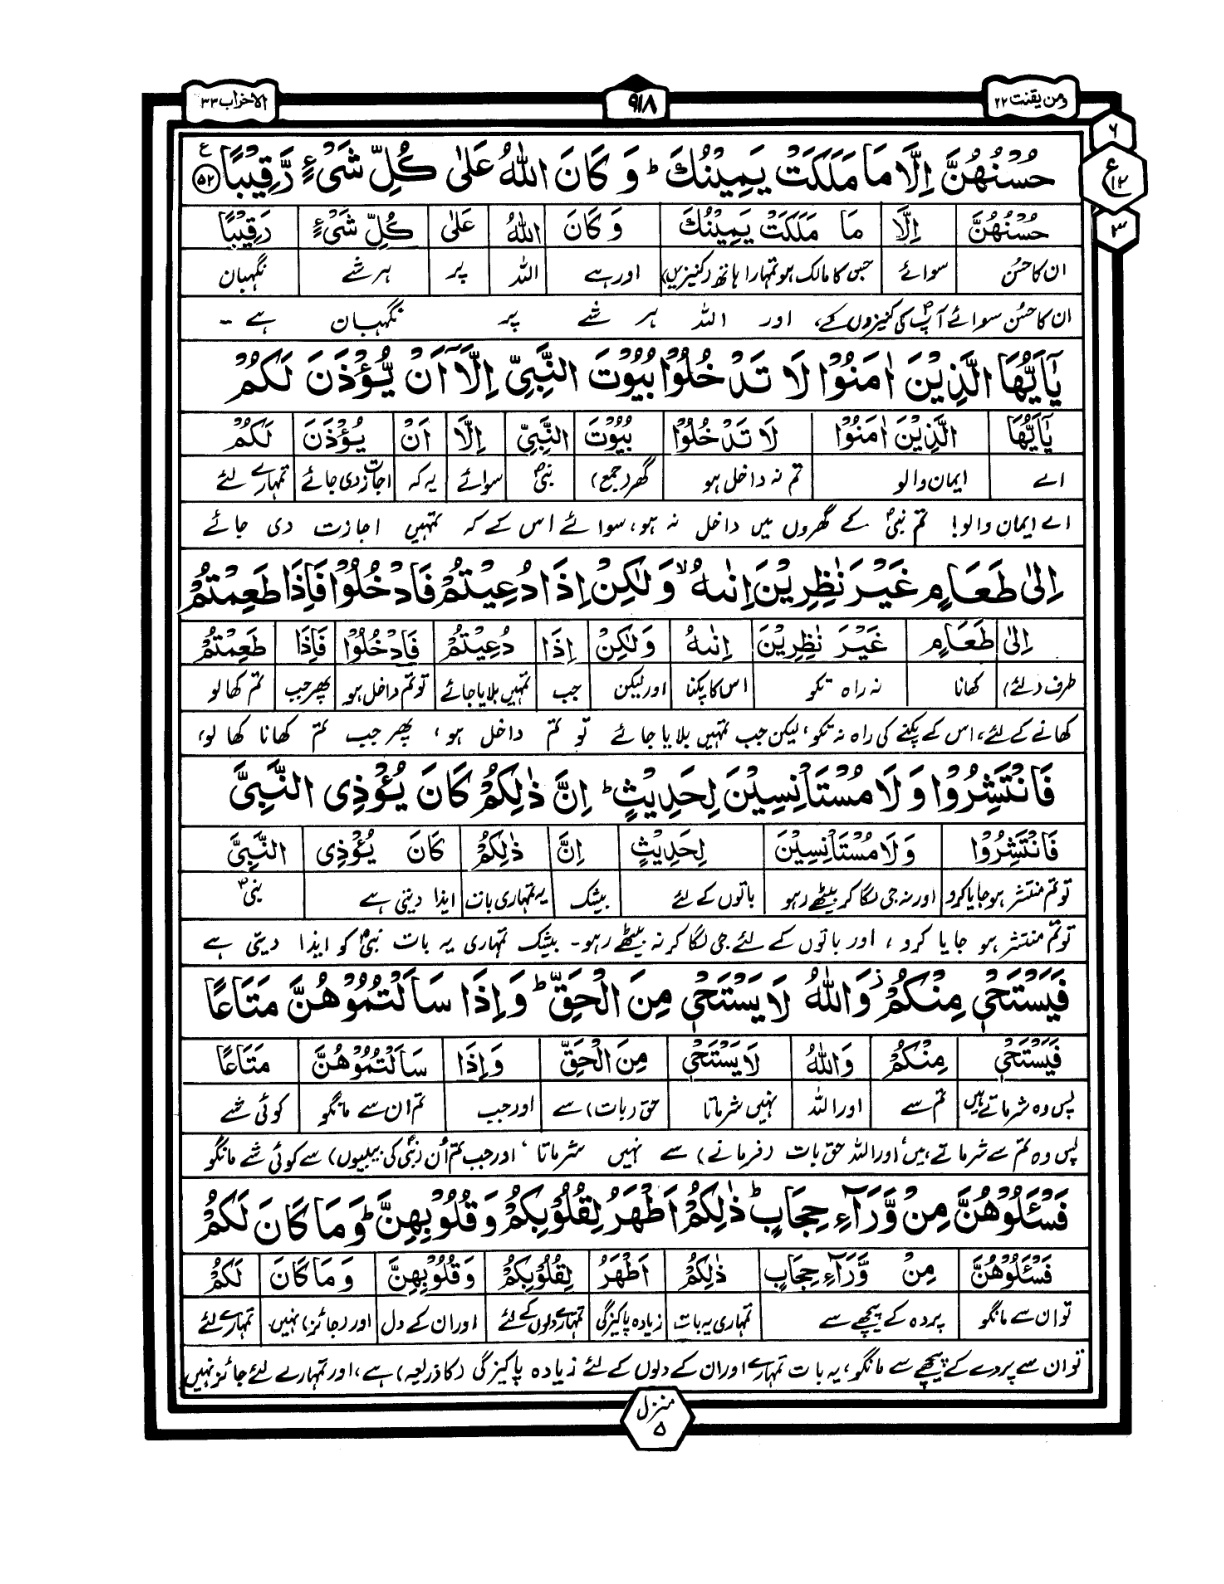 ومن یقنت ۲۲
۹۱۸
الاحزاب ۳۳
۶
ع
۱۲
۳
حُسْنُهُنَّ اِلَّا مَا مَلَكَتْ يَمِيْنُكَ ؕ وَ كَانَ اللّٰهُ عَلٰى كُلِّ شَىْءٍ رَّقِيْبًا ﴿۵۲﴾ ع
حُسْنُهُنَّ اِلَّا مَا مَلَكَتْ يَمِيْنُكَ وَ كَانَ اللّٰهُ عَلٰى كُلِّ شَىْءٍ رَقِيْبًا
ان کا حسن سوائے جس کا مالک ہو تمہارا ہاتھ (کنیزیں) اور ہے اللہ پر ہر شے نگہبان
ان کا حسن سوائے آپؐ کی کنیزوں کے، اور اللہ ہر شے پر نگہبان ہے ۔
يٰۤاَيُّهَا الَّذِيْنَ اٰمَنُوْا لَا تَدْخُلُوْا بُيُوْتَ النَّبِىِّ اِلَّاۤ اَنْ يُّؤْذَنَ لَكُمْ
يٰۤاَيُّهَا الَّذِيْنَ اٰمَنُوْا لَا تَدْخُلُوْا بُيُوْتَ النَّبِىِّ اِلَّا اَنْ يُؤْذَنَ لَكُمْ
اے ایمان والو تم نہ داخل ہو گھر (جمع) نبیؐ سوائے یہ کہ اجازت دی جائے تمہارے لئے
اے ایمان والو! تم نبیؐ کے گھروں میں داخل نہ ہو، سوائے اس کے کہ تمہیں اجازت دی جائے
اِلٰى طَعَامٍ غَيْرَ نٰظِرِيْنَ اِنٰىهُ ۙ وَلٰكِنْ اِذَا دُعِيْتُمْ فَادْخُلُوْا فَاِذَا طَعِمْتُمْ
اِلٰى طَعَامٍ غَيْرَ نٰظِرِيْنَ اِنٰىهُ وَلٰكِنْ اِذَا دُعِيْتُمْ فَادْخُلُوْا فَاِذَا طَعِمْتُمْ
طرف (لئے) کھانا نہ راہ تکو اس کا پکنا اور لیکن جب تمہیں بلایا جائے تو تم داخل ہو پھر جب تم کھا لو
کھانے کے لئے، اس کے پکنے کی راہ نہ تکو، لیکن جب تمہیں بلایا جائے تو تم داخل ہو، پھر جب تم کھانا کھا لو،
فَانْتَشِرُوْا وَلَا مُسْتَاْنِسِيْنَ لِحَدِيْثٍ ؕ اِنَّ ذٰلِكُمْ كَانَ يُؤْذِى النَّبِىَّ
فَانْتَشِرُوْا وَلَا مُسْتَاْنِسِيْنَ لِحَدِيْثٍ اِنَّ ذٰلِكُمْ كَانَ يُؤْذِى النَّبِىَّ
تو تم منتشر ہو جایا کرو اور نہ جی لگا کر بیٹھے رہو باتوں کے لئے بیشک یہ تمہاری بات ایذا دیتی ہے نبیؐ
تو تم منتشر ہو جایا کرو، اور باتوں کے لئے جی لگا کر نہ بیٹھے رہو۔ بیشک تمہاری یہ بات نبیؐ کو ایذا دیتی ہے
فَيَسْتَحْىٖ مِنْكُمْ ؗ وَاللّٰهُ لَا يَسْتَحْىٖ مِنَ الْحَقِّ ؕ وَاِذَا سَاَلْتُمُوْهُنَّ مَتَاعًا
فَيَسْتَحْىٖ مِنْكُمْ وَاللّٰهُ لَا يَسْتَحْىٖ مِنَ الْحَقِّ وَاِذَا سَاَلْتُمُوْهُنَّ مَتَاعًا
پس وہ شرماتے ہیں تم سے اور اللہ نہیں شرماتا حق (بات) سے اور جب تم ان سے مانگو کوئی شے
پس وہ تم سے شرماتے ہیں، اور اللہ حق بات (فرمانے) سے نہیں شرماتا، اور جب تم اُن (نبیؐ کی بیبیوں) سے کوئی شے مانگو
فَسْـَٔلُوْهُنَّ مِنْ وَّرَآءِ حِجَابٍ ؕ ذٰلِكُمْ اَطْهَرُ لِقُلُوْبِكُمْ وَقُلُوْبِهِنَّ ؕ وَمَا كَانَ لَكُمْ
فَسْـَٔلُوْهُنَّ مِنْ وَّرَآءِ حِجَابٍ ذٰلِكُمْ اَطْهَرُ لِقُلُوْبِكُمْ وَقُلُوْبِهِنَّ وَمَا كَانَ لَكُمْ
تو ان سے مانگو پردہ کے پیچھے سے تمہاری یہ بات زیادہ پاکیزگی تمہارے دلوں کے لئے اور ان کے دل اور (جائز) نہیں تمہارے لئے
تو ان سے پردے کے پیچھے سے مانگو، یہ بات تمہارے اور ان کے دلوں کے لئے زیادہ پاکیزگی (کا ذریعہ) ہے، اور تمہارے لئے جائز نہیں
منزل
۵